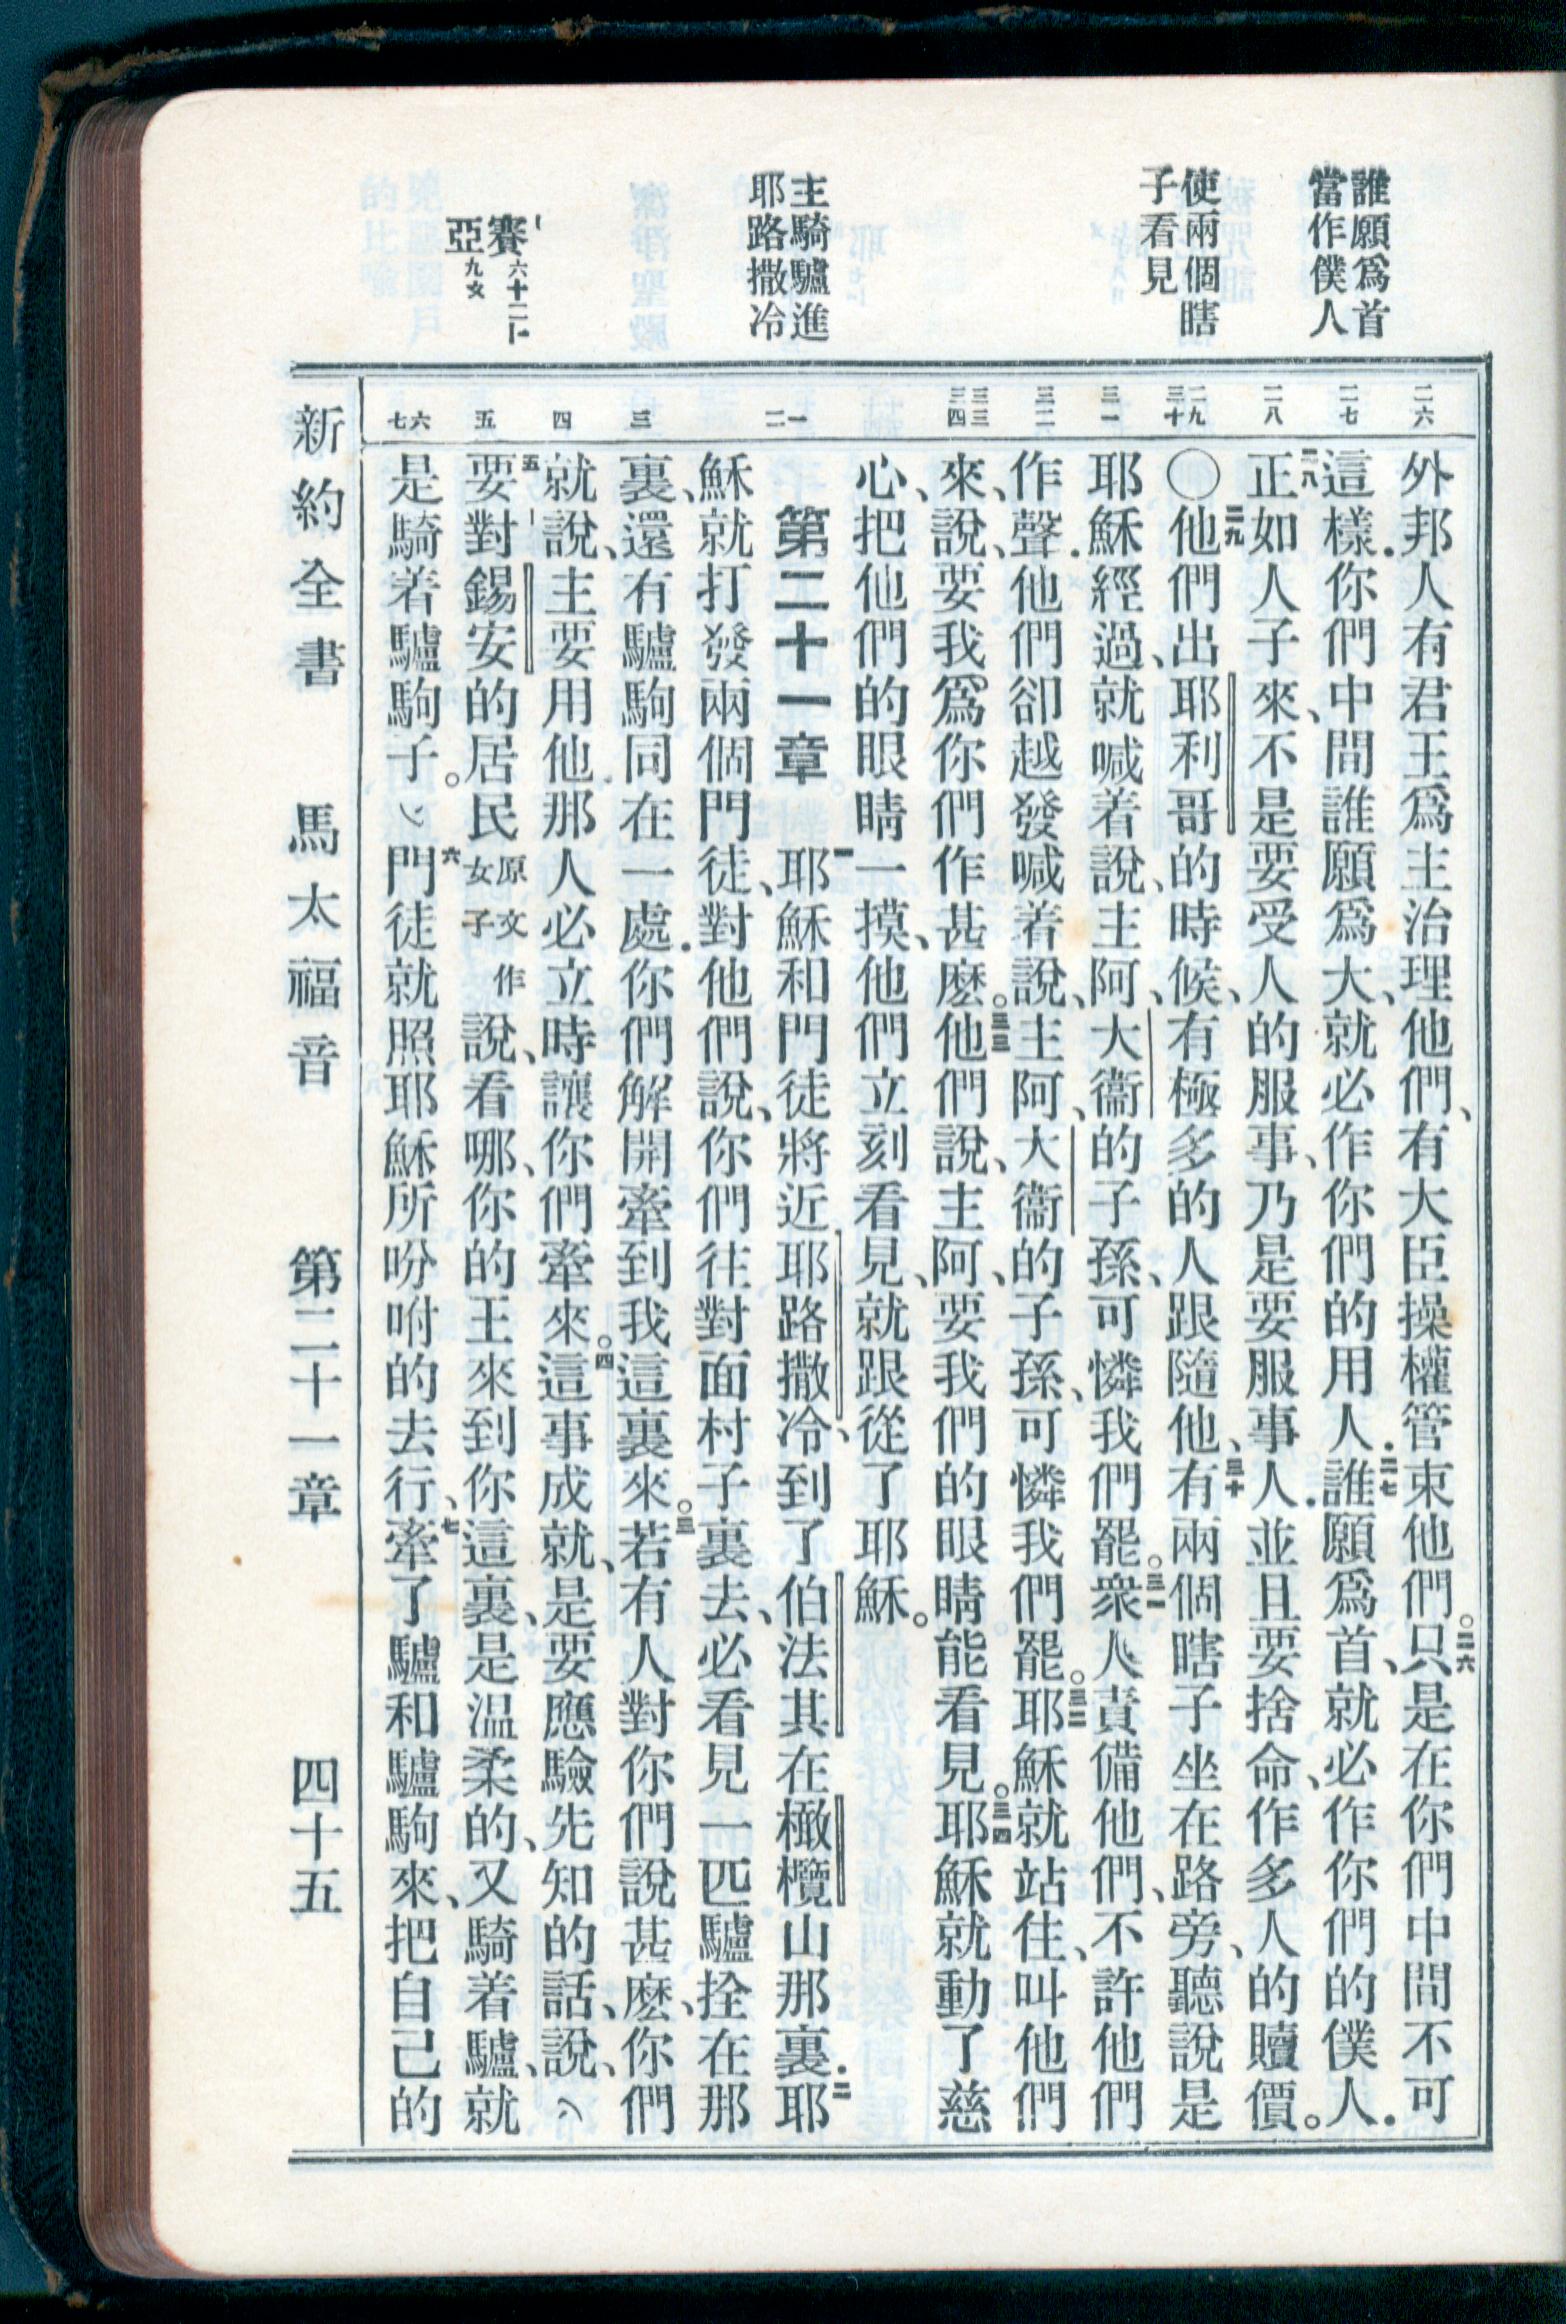 誰願爲首
當作僕人
使兩個瞎
子看見
主騎驢進
耶路撒冷
賽六十二
亞九
二六
二七
二八
二九
三十
三一
三二
三三
三四
一
二
三
四
五
六
七
外邦人有君王爲主治理他們、有大臣操權管束他們。二六只是在你們中間不可
這樣．你們中間誰願爲大、就必作你們的用人．二七誰願爲首、就必作你們的僕人．
二八正如人子來、不是要受人的服事、乃是要服事人．並且要捨命、作多人的贖價。
〇二九他們出耶利哥的時候、有極多的人跟隨他、三十有兩個瞎子坐在路旁、聽說是
耶穌經過、就喊着說、主阿、大衞的子孫、可憐我們罷。三一衆人責備他們、不許他們
作聲．他們卻越發喊着說、主阿、大衞的子孫、可憐我們罷。三二耶穌就站住、叫他們
來、說、要我爲你們作甚麽。三三他們說、主阿、要我們的眼睛能看見。三四耶穌就動了慈
心、把他們的眼睛一摸、他們立刻看見、就跟從了耶穌。
第二十一章 一耶穌和門徒將近耶路撒冷、到了伯法其在橄欖山那裏．二耶
穌就打發兩個門徒、對他們說、你們往對面村子裏去、必看見一匹驢拴在那
裏、還有驢駒同在一處．你們解開牽到我這裏來。三若有人對你們說甚麽、你們
就說、主要用他那人必立時讓你們牽來。四這事成就、是要應驗先知的話、說、
五要對錫安的居民原文作女子說、看哪、你的王來到你這裏、是温柔的、又騎着驢、就
是騎着驢駒子。六門徒就照耶穌所吩咐的去行、七牽了驢和驢駒來、把自己的
新約全書 馬太福音 第二十一章 四十五